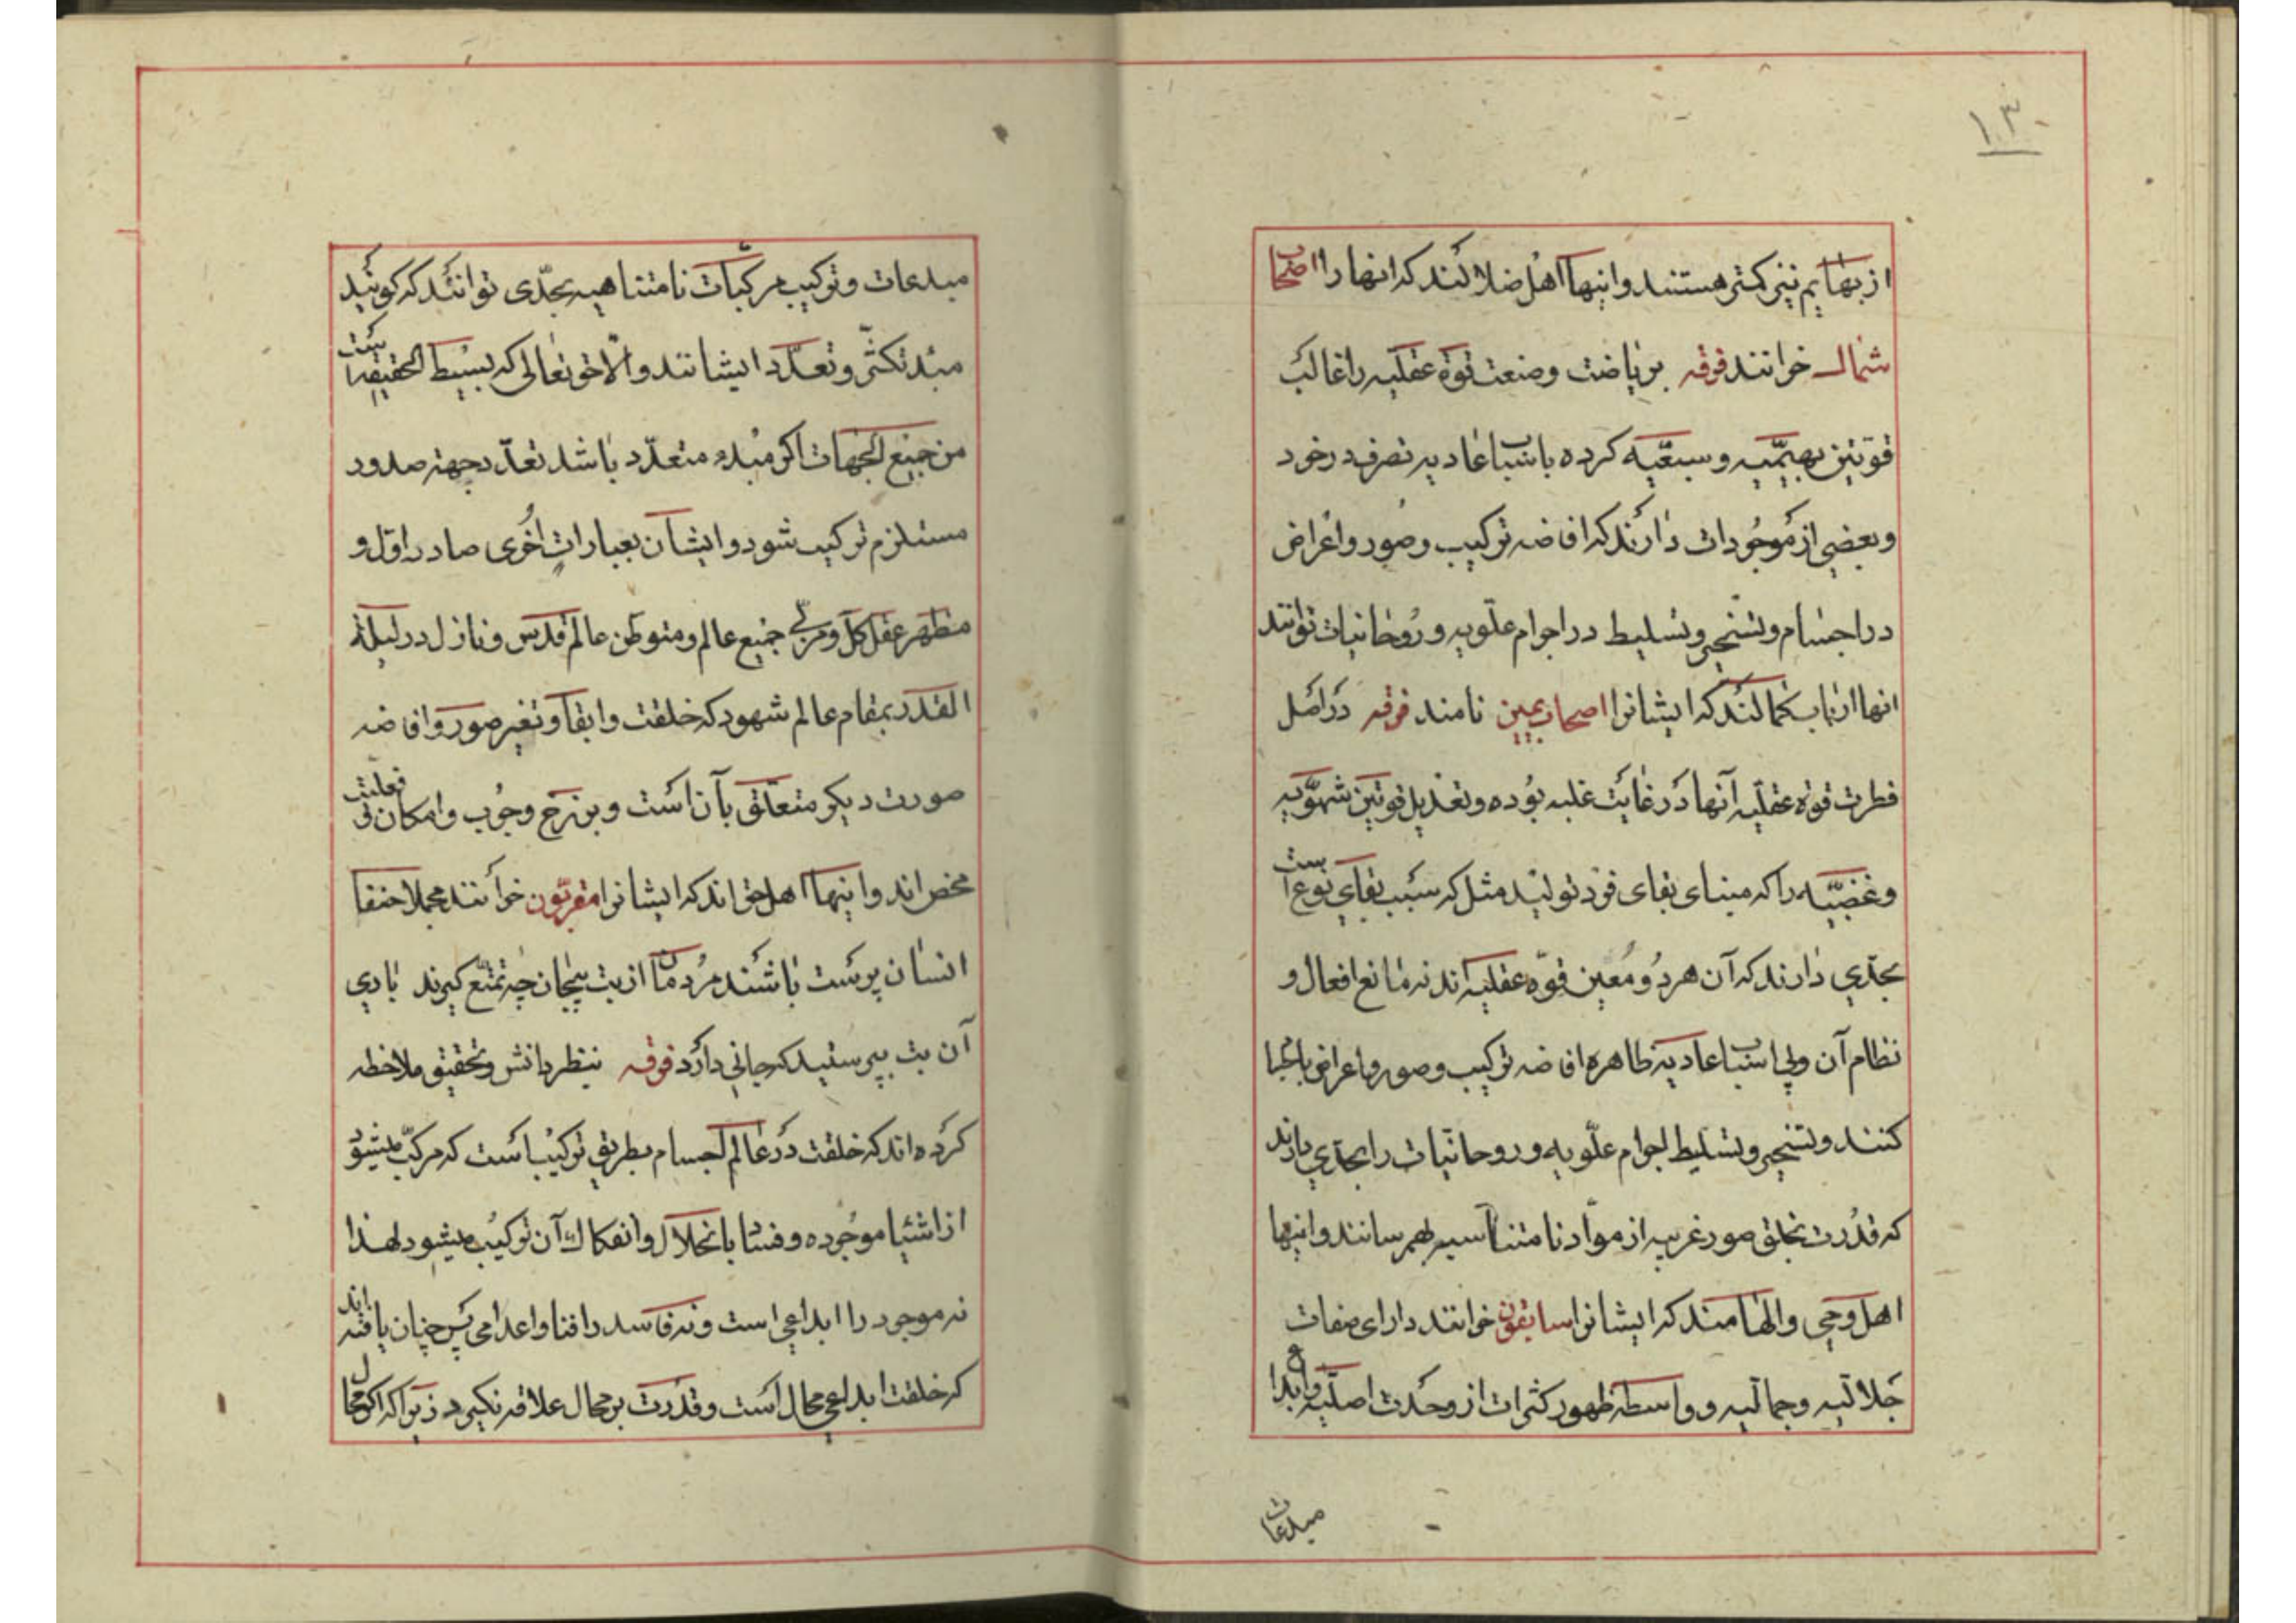 ۱۳۰
از بهایم نیز کمتر هستند و اینها اهل ضلالند که انها را اصحاب
شمال خوانند فرقه بریاضت وصنعت قوة عقلیه را غالب
قوتین بهیمیه و سبعیه کرده باسباب عادیه تصرف در خود
وبعضی از موجودات دارند که افاضه ترکیب وصور واعراض
در اجسام وتسخیر وتسلیط در اجرام علویه و روحانیات توانند
انها ارباب کمالند که ایشانرا اصحاب یمین نامند فرقه در اصل
فطرت قوة عقلیه آنها در غایت غلبه بوده وتعدیل قوتین شهویه
وغضبیه را که مبنای بقای فرد تولید مثل که سبب بقای نوع است
بحدی دارند که آن هر دو معین قوه عقلیه اند نه مانع افعال و
نظام آن ولی اسباب عادیه ظاهره افاضه ترکیب وصور واعراض باجسا
کنند وتسخیر وتسلیط اجرام علویه و روحانیات را بحدی دارند
که قدرت بخلق صور غریبه از مواد نامتناسبه بهم رسانند واینها
اهل وحی والهامند که ایشانرا سابقون خوانند دارای صفات
جلالیه وجمالیه و واسطه ظهور کثرات از وحدت اصلیه وابداع
مبدعات
مبدعات وترکیب مرکبات نامتناهیه بحدی توانند که کویند
مبدء تکثر وتعدد ایشانند والا حق تعالی که بسیط الحقیقه است
من جمیع الجهات اکر مبدء متعدد باشد تعدد جهة صدور
مستلزم ترکیب شود وایشان بعبارات اخری صادر اول و
مظهر عقل کل ومربی جمیع عالم ومتوطن عالم قدس ونازل در لیلة
القدر بمقام عالم شهود که خلقت وابقا وتغیر صور وافاضه
صورت دیکر متعلق بآن است وبرزخ وجوب وامکان و فعلیت
محض اند واینها اهل حق اند که ایشانرا مقربون خوانند مجملا حنفا
انسان پرست باشند مردمان از بت بیجان چه تمتع کیرند باری
آن بت بپرستید که جانی دارد فرقه بنظر دانش وتحقیق ملاحظه
کرده اند که خلقت در عالم اجسام بطریق ترکیب است که مرکب میشود
از اشیا موجوده وفسا بانحلال وانفکاک آن ترکیب میشود لهذا
نه موجود را ابداعی است ونه فاسد را فنا واعدامی پس چنان یافته اند
که خلقت ابداعی محال است وقدرت بر محال علاقه نکیرد زیرا که اکر محال